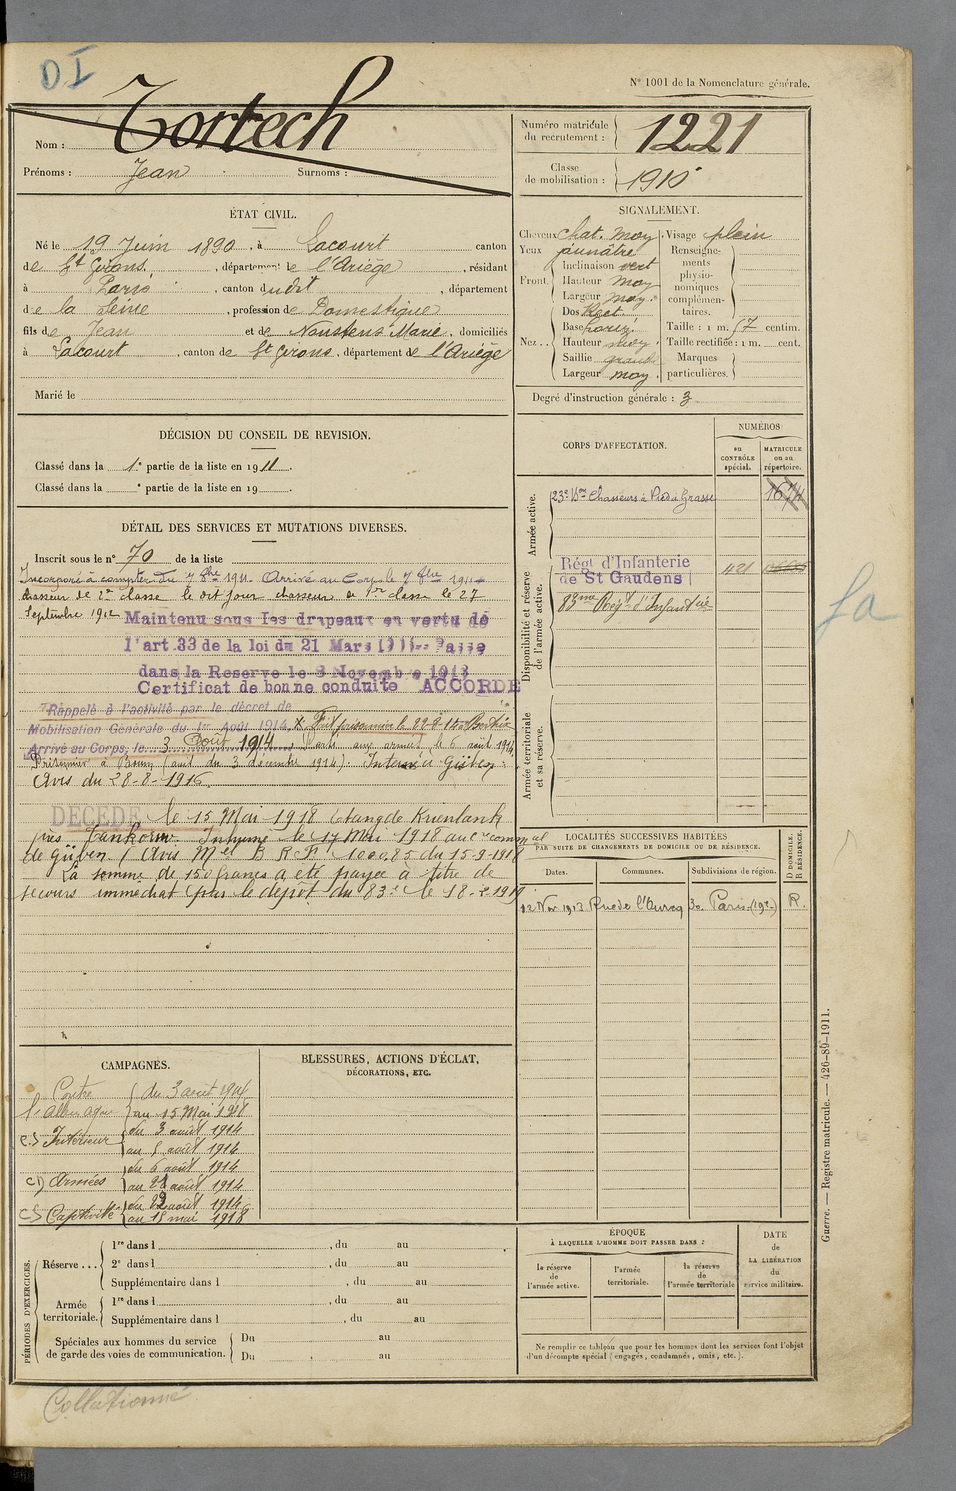 DI
N° 1001 de la Nomenclature générale.
Nom : Tortech
Prénoms : Jean Surnoms :
Numéro matricule du recrutement : 1221
Classe de mobilisation : 1910
ÉTAT CIVIL.
Né le 19 Juin 1890, à Lacourt canton
de St Girons, département de l'Ariège, résidant
à Paris, canton dudit, département
de la Seine, profession de Domestique
fils de Jean et de Marie, domiciliés
à Lacourt, canton de St Girons, département de l'Ariège
Marié le
SIGNALEMENT.
Cheveux chat. moy
Yeux jaunâtre
Front. Inclinaison vert
Hauteur moy
Largeur moy.
Nez.. Dos Rect.
Base horiz.
Hauteur moy
Saillie grande
Largeur moy.
Visage plein
Renseignements physionomiques complémentaires.
Taille : 1 m. 67 centim.
Taille rectifiée : 1 m. cent.
Marques particulières.
Degré d'instruction générale : 3
DÉCISION DU CONSEIL DE REVISION.
Classé dans la 1e partie de la liste en 1911.
Classé dans la e partie de la liste en 19 .
CORPS D'AFFECTATION.
NUMÉROS
au CONTRÔLE spécial.
MATRICULE ou au répertoire.
Armée active.
23e Bon Chasseurs à Pied à Grasse 1674
Disponibilité et réserve de l'armée active.
Régt d'Infanterie
de St Gaudens 421
83ème Régt d'Infanterie
Armée territoriale et sa réserve.
DÉTAIL DES SERVICES ET MUTATIONS DIVERSES.
Inscrit sous le n° 70 de la liste
Incorporé à compter du 7 8bre 1911. Arrivé au Corps le 7 8bre 1911
chasseur de 2e classe le dit jour chasseur de 1re classe le 27
Septembre 1912 Maintenu sous les drapeaux en vertu de
l'art. 33 de la loi du 21 Mars Passe
dans la Reserve le 8 Novembre 1913
Certificat de bonne conduite ACCORDE
Rappelé à l'activité par le décret de
Mobilisation Générale du 1er Août 1914. Fait prisonnier le 22-8-14 à Bertrix
Arrivé au Corps, le 3 Août 1914 Parti aux armées le 6 août 1914
Prisonnier à (avis du 3 décembre 1914). Interné à Güben
Avis du 28-8-1916.
DECEDE le 15 Mai 1918 étang de
près Inhumé le 17 Mai 1918 au
de Güben (Avis Mel B R 100085 du 15-9-1918
La somme de 150 francs a été payée à titre de
secours immédiat par le dépôt du 83e le
LOCALITÉS SUCCESSIVES HABITÉES
PAR SUITE DE CHANGEMENTS DE DOMICILE OU DE RÉSIDENCE.
Dates. Communes. Subdivisions de région. D DOMICILE. R RÉSIDENCE.
12 Nov 1913 Rue de l'Ourcq 30 Paris (19e) R.
fa
CAMPAGNES.
Contre l'Allemagne du 3 août 1914
au 15 Mai 1918
Intérieur du 3 août 1914
au 5 août 1914
Armées du 6 août 1914
au 21 août 1914
Captivité du 22 août 1914
au 15 mai 1918
BLESSURES, ACTIONS D'ÉCLAT,
DÉCORATIONS, ETC.
PÉRIODES D'EXERCICES.
Réserve ... 1re dans l , du au
2e dans l , du au
Supplémentaire dans l , du au
Armée territoriale. 1re dans l , du au
Supplémentaire dans l , du au
Spéciales aux hommes du service de garde des voies de communication. Du au
Du au
ÉPOQUE
À LAQUELLE L'HOMME DOIT PASSER DANS :
la réserve de l'armée active.
l'armée territoriale.
la réserve de l'armée territoriale
DATE de LA LIBÉRATION du service militaire.
Ne remplir ce tableau que pour les hommes dont les services font l'objet
d'un décompte spécial (engagés, condamnés, omis, etc.).
Guerre. — Registre matricule. — 426-89-1911.
Collationné